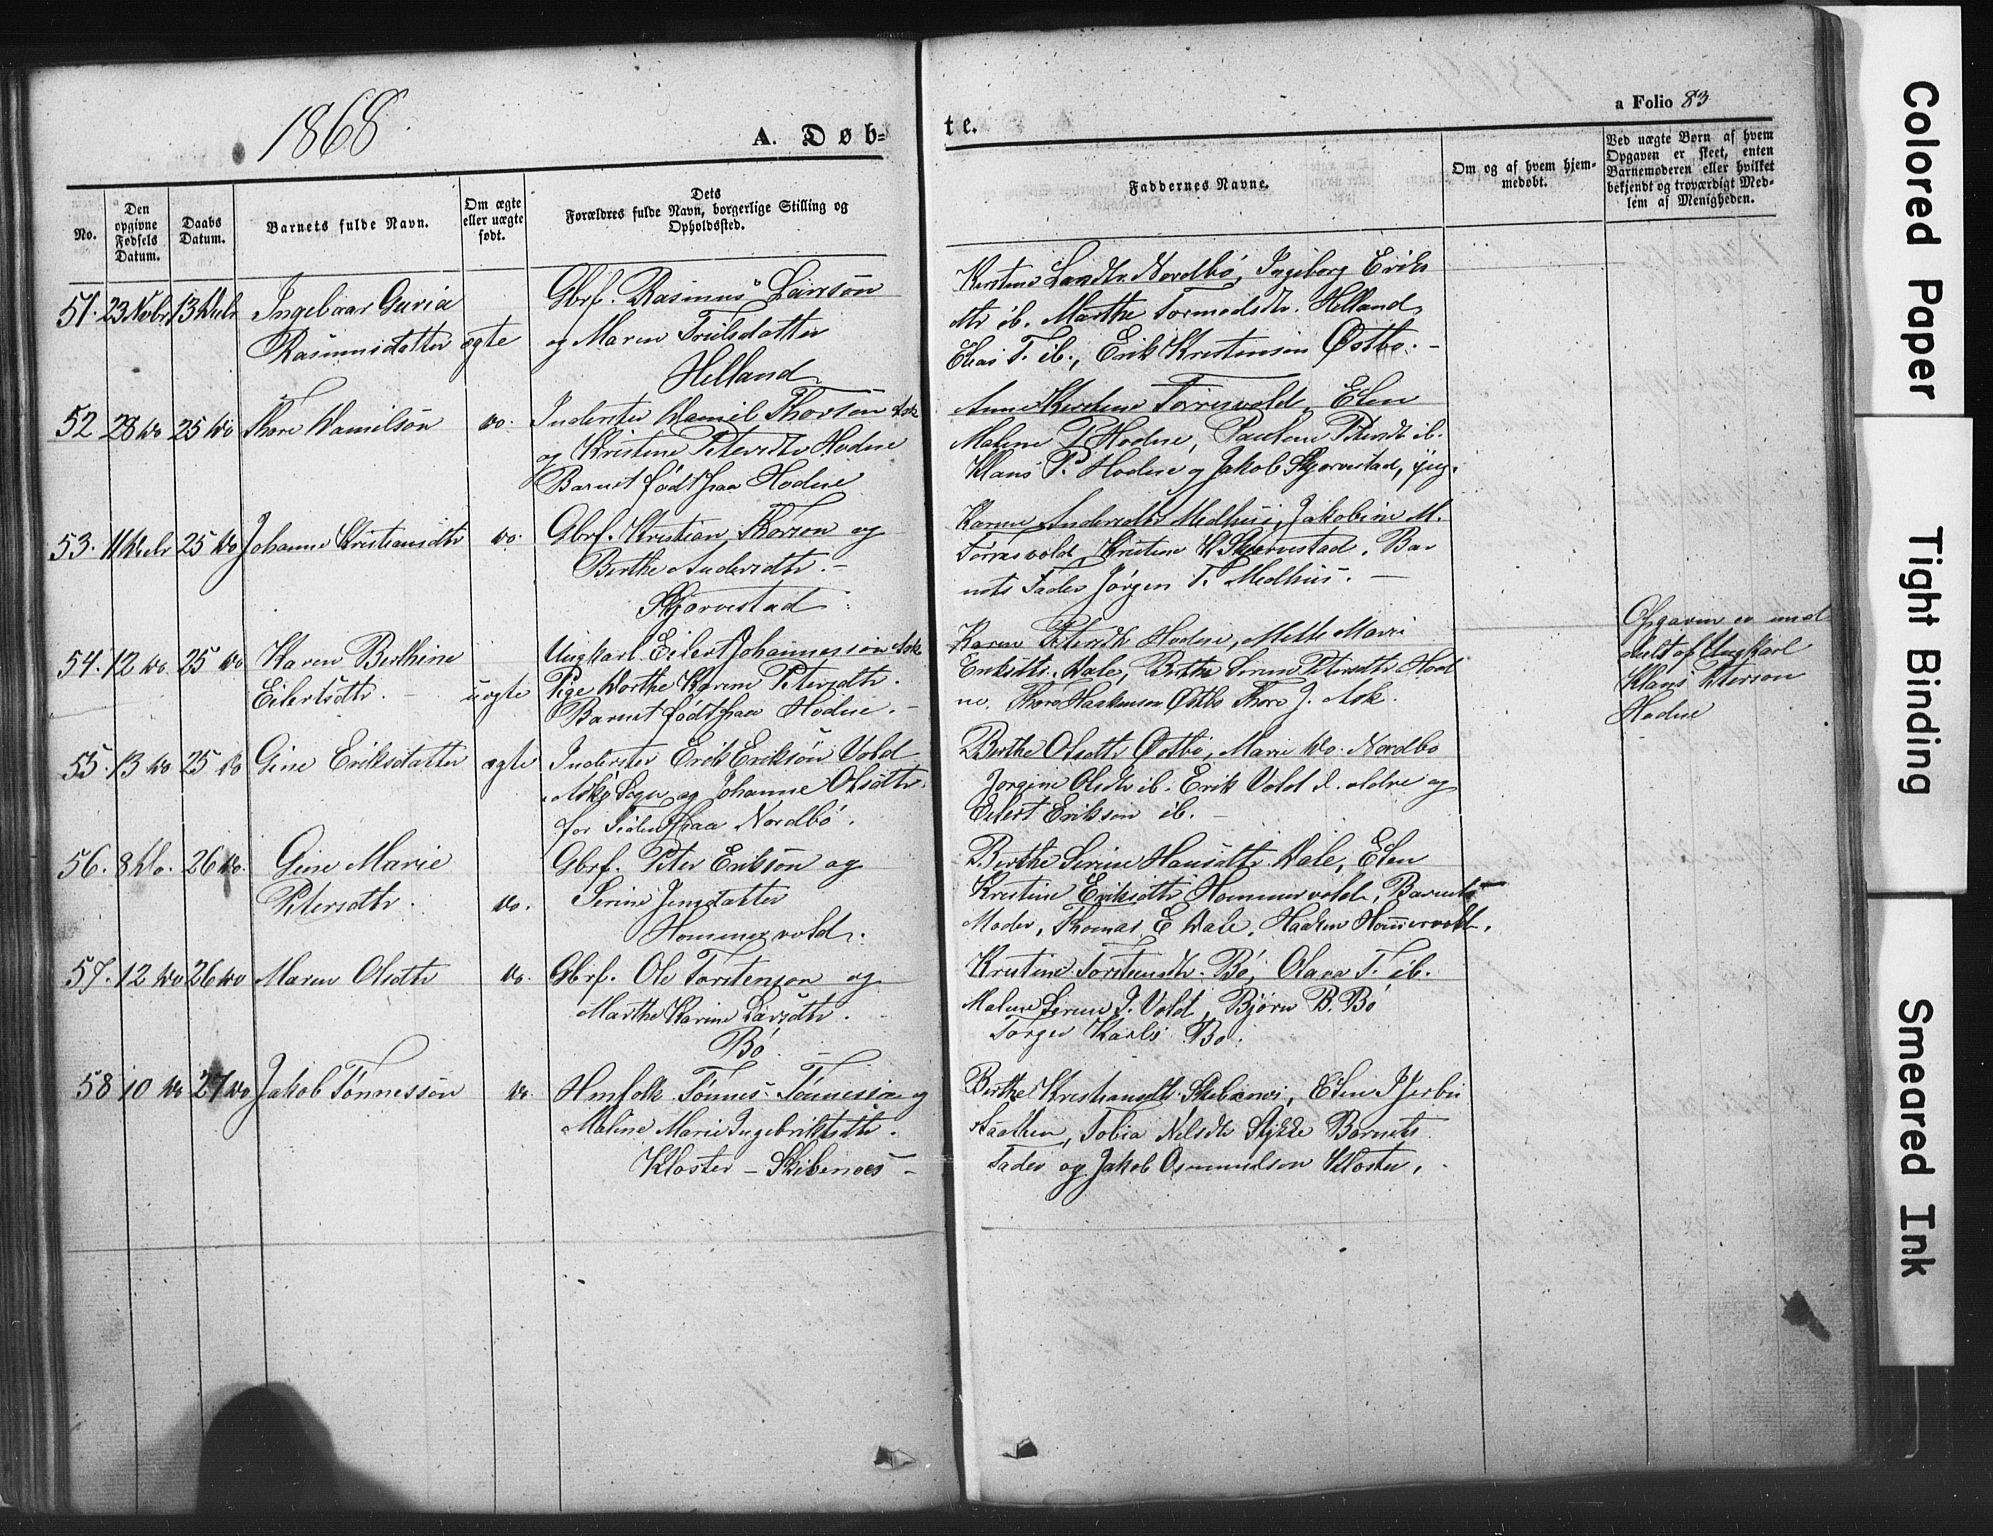 1868
A. Døb-
te.
a Folio 83
No.
Den
opgivne
Fødsels
Datum.
Daabs
Datum.
Barnets fulde Navn.
Om ægte
eller uægte
født.
Dets
Forældres fulde Navn, borgerlige Stilling og
Opholdssted.
Faddernes Navne.
Om og af hvem hjem-
medøbt.
Ved uægte Børn af hvem
Opgaven er skeet, enten
Barnemoderen eller hvilket
bekjendt og troværdigt Med-
lem af Menigheden.
51. 23 Novbr 13 Decbr Ingeboar Guria
Rasmusdatter ægte
Gbrf. Rasmus
og Maren Troelsdatter
Helland
Nordbø, Ingeborg Eriks
dtr ib. Marthe Tormodsdtr. Helland
Elias T. ib., Erik Kristenson Østbø. -
52 28 do 25 do Thore Danielsøn do.
Inderster Daniel Thorsøn Ask
og Kristine Petersdtr Hodne
Barnet født paa Hodne
Anne Kirstine Torresvold, Elen
Malene P. Hodne, Pauline Petersdt ib.
Klaus P. Hodne og Jakob Skjørvestad,
53. 11 Decbr 25 do Johanne Kristiansdtr do.
Gbrf. Kristian Thorson og
Berthe Andersdtr. -
Skjørvestad
Karen Andersdtr Medhus, Jakobine M.
Torresvold, Kristine K Skjørvestad. Bar
nets Fader Jørgen T. Medhus. -
54. 12 do 25 do Karen Berthine
Eilertsdtr. - uægte
Ungkarl Eilert Johannesson Ask
Pige Dorthe Karine Petersdtr.
Barnet født paa Hodne. -
Karen Petersdtr Hodne, Mette Marie
Eriksdtr. Dale, Berthe Serine Petersdtr Hod
ne. Thore Haakenson Østbø Thore J. Ask.
Opgaven er med
delt af Ungkarl
Klaus Peterson
Hodne
55. 13 do 25 do Gine Eriksdatter ægte
Inderster Erik Eriksøn Vold
Askø Sogn og Johanne Olsdtr.
for Tiden paa Nordbø.
Berthe Olsdtr Østbø, Marie do. Nordbø
Jorgine Olsdtr ib. Erik Vold d. ældre og
Eilert Erikson ib. -
56. 8 do. 26 do. Gine Marie
Petersdtr. do.
Gbrf. Peter Eriksøn og
Serine Jensdatter
Hommersvold.
Berthe Serine Hansdtr. Dale, Elen
Kristine Eriksdtr Hommersvold, Barnets
Moder, Thomas E Dale, Haaken Hommersvold.
57. 12 do 26 do Maren Olsdtr do.
Gbrf. Ole Torstenson og
Marthe Karine Larsdtr.
Bø. -
Kristine Torstensdtr. Bø, Olava T. ib.
Malene Serine J. Vold, Bjørn B. Bø
Torger Karls Bø.
58 10 do 27 do Jakob Tønnessøn do.
Hmfolk Tønnes Tønnesson og
Maline Marie Ingebriktsdtr.
Kloster - Skibenæs -
Berthe Kristiansdtr. Skibenæs, Elen
Tobia Nelsdtr Barnets
Fader og Jakob Osmundson Kloster.
Colored Paper
Tight Binding
Smeared Ink